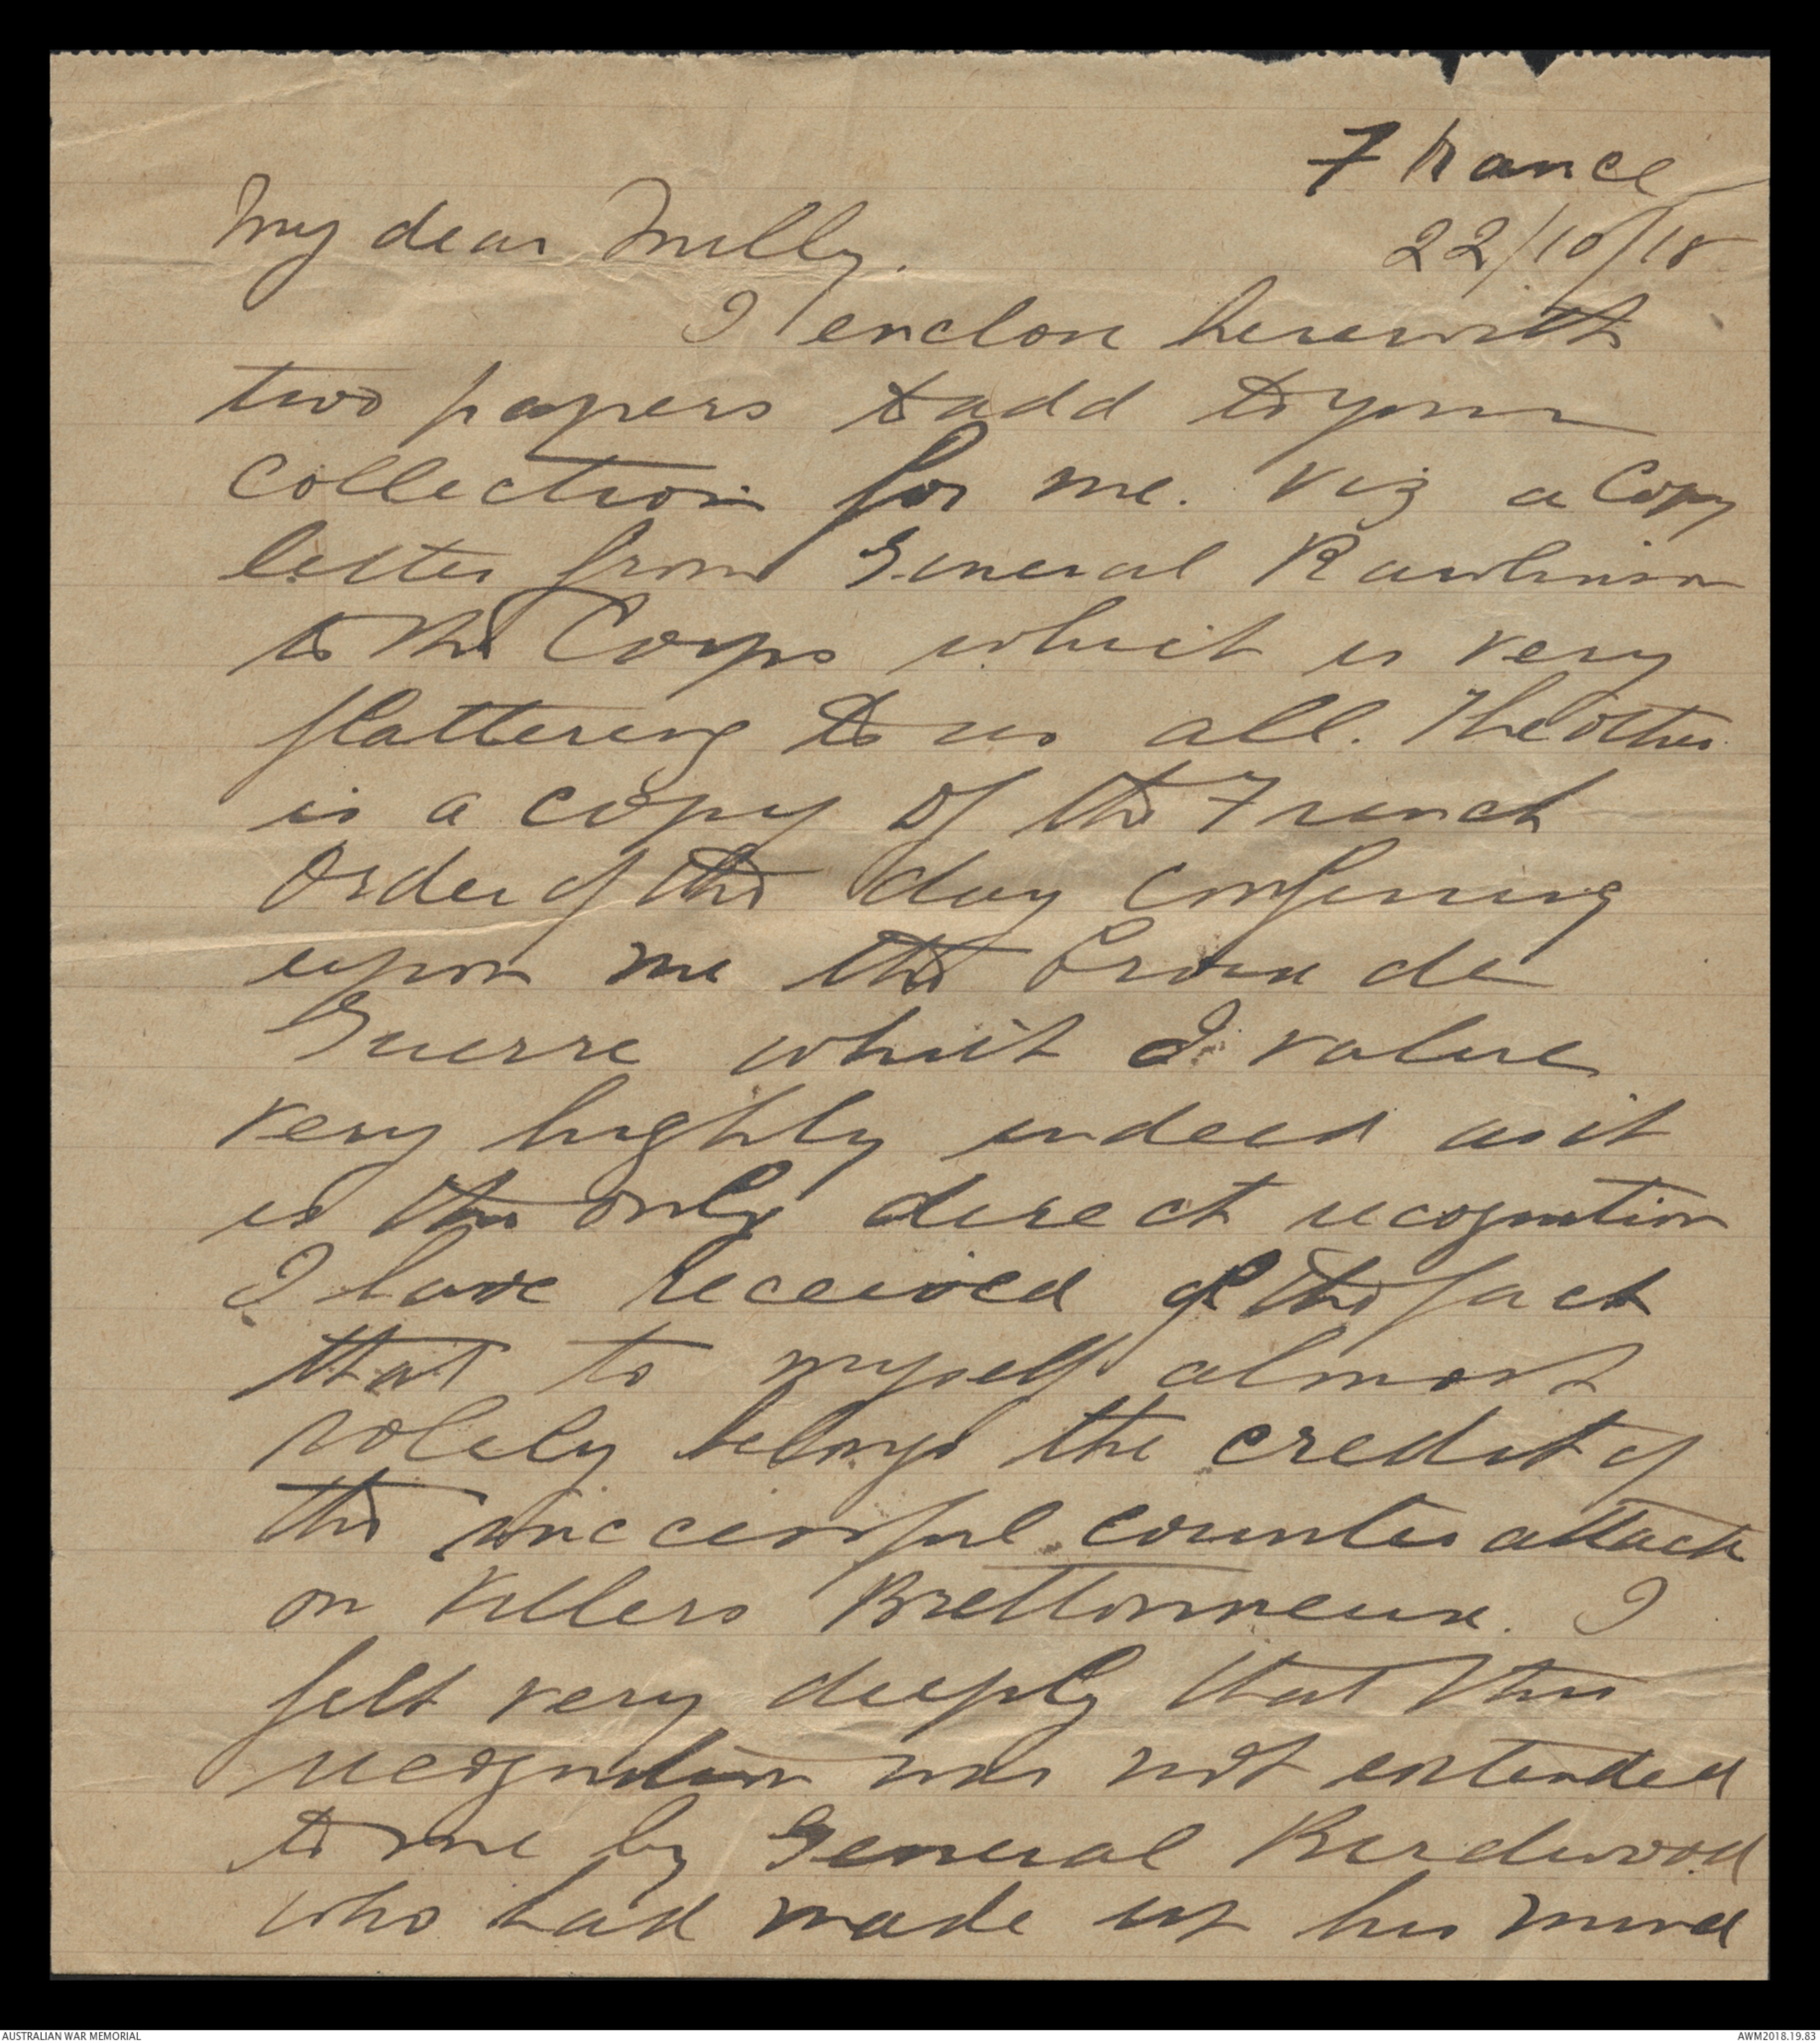 France
22/10/18
My dear Milly.
I enclose herewith
two papers to add to your
collection for me. viz a Copy
letter from General Rawlinson
to the Corps which is very
flattering to us all. The other
is a copy of the French
Order of the day conferring
upon me the Croix de
Guerre which I value
very highly indeed as it
is the only direct recognition
I have received of the fact
that to myself almost
solely belongs the credit of
the successful counter attack
on Villers Brettonneux. I
felt very deeply that this
recognition was not extended
to me by General Birdwood
who had made up his mind
AUSTRALIAN WAR MEMORIAL
AWM2018.19.83